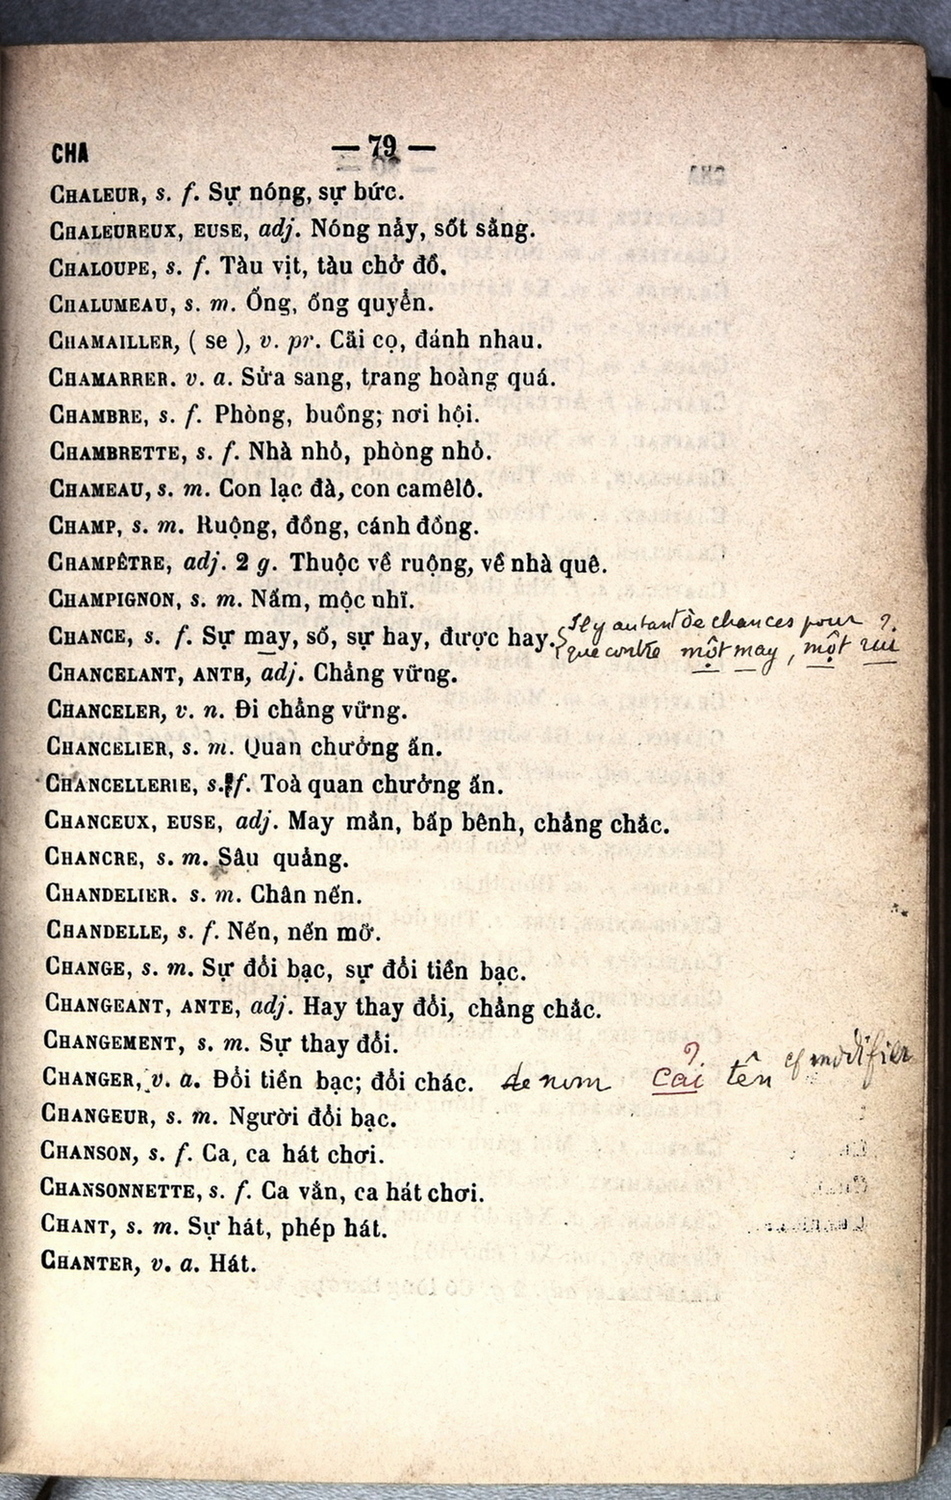 CHA — 79 —
CHALEUR, s. f. Sự nóng, sự bức.
CHALEUREUX, EUSE, adj. Nóng nảy, sốt sắng.
CHALOUPE, s. f. Tàu vịt, tàu chở đồ.
CHALUMEAU, s. m. Ống, ống quyển.
CHAMAILLER, ( se ), v. pr. Cãi cọ, đánh nhau.
CHAMARRER. v. a. Sửa sang, trang hoàng quá.
CHAMBRE, s. f. Phòng, buồng; nơi hội.
CHAMBRETTE, s. f. Nhà nhỏ, phòng nhỏ.
CHAMEAU, s. m. Con lạc đà, con camêlô.
CHAMP, s. m. Ruộng, đồng, cánh đồng.
CHAMPÊTRE, adj. 2 g. Thuộc về ruộng, về nhà quê.
CHAMPIGNON, s. m. Nấm, mộc nhĩ.
CHANCE, s. f. Sự may, số, sự hay, được hay. { Il y autant de chances pour ?
que contre một may, một rủi
CHANCELANT, ANTE, adj. Chẳng vững.
CHANCELER, v. n. Đi chẳng vững.
CHANCELIER, s. m. Quan chưởng ấn.
CHANCELLERIE, s. f. Toà quan chưởng ấn.
CHANCEUX, EUSE, adj. May mắn, bấp bênh, chẳng chắc.
CHANCRE, s. m. Sâu quảng.
CHANDELIER. s. m. Chân nến.
CHANDELLE, s. f. Nến, nến mỡ.
CHANGE, s. m. Sự đổi bạc, sự đổi tiền bạc.
CHANGEANT, ANTE, adj. Hay thay đổi, chẳng chắc.
CHANGEMENT, s. m. Sự thay đổi.
CHANGER, v. a. Đổi tiền bạc; đổi chác. de nom cải ? tên cf modifier
CHANGEUR, s. m. Người đổi bạc.
CHANSON, s. f. Ca, ca hát chơi.
CHANSONNETTE, s. f. Ca vắn, ca hát chơi.
CHANT, s. m. Sự hát, phép hát.
CHANTER, v. a. Hát.